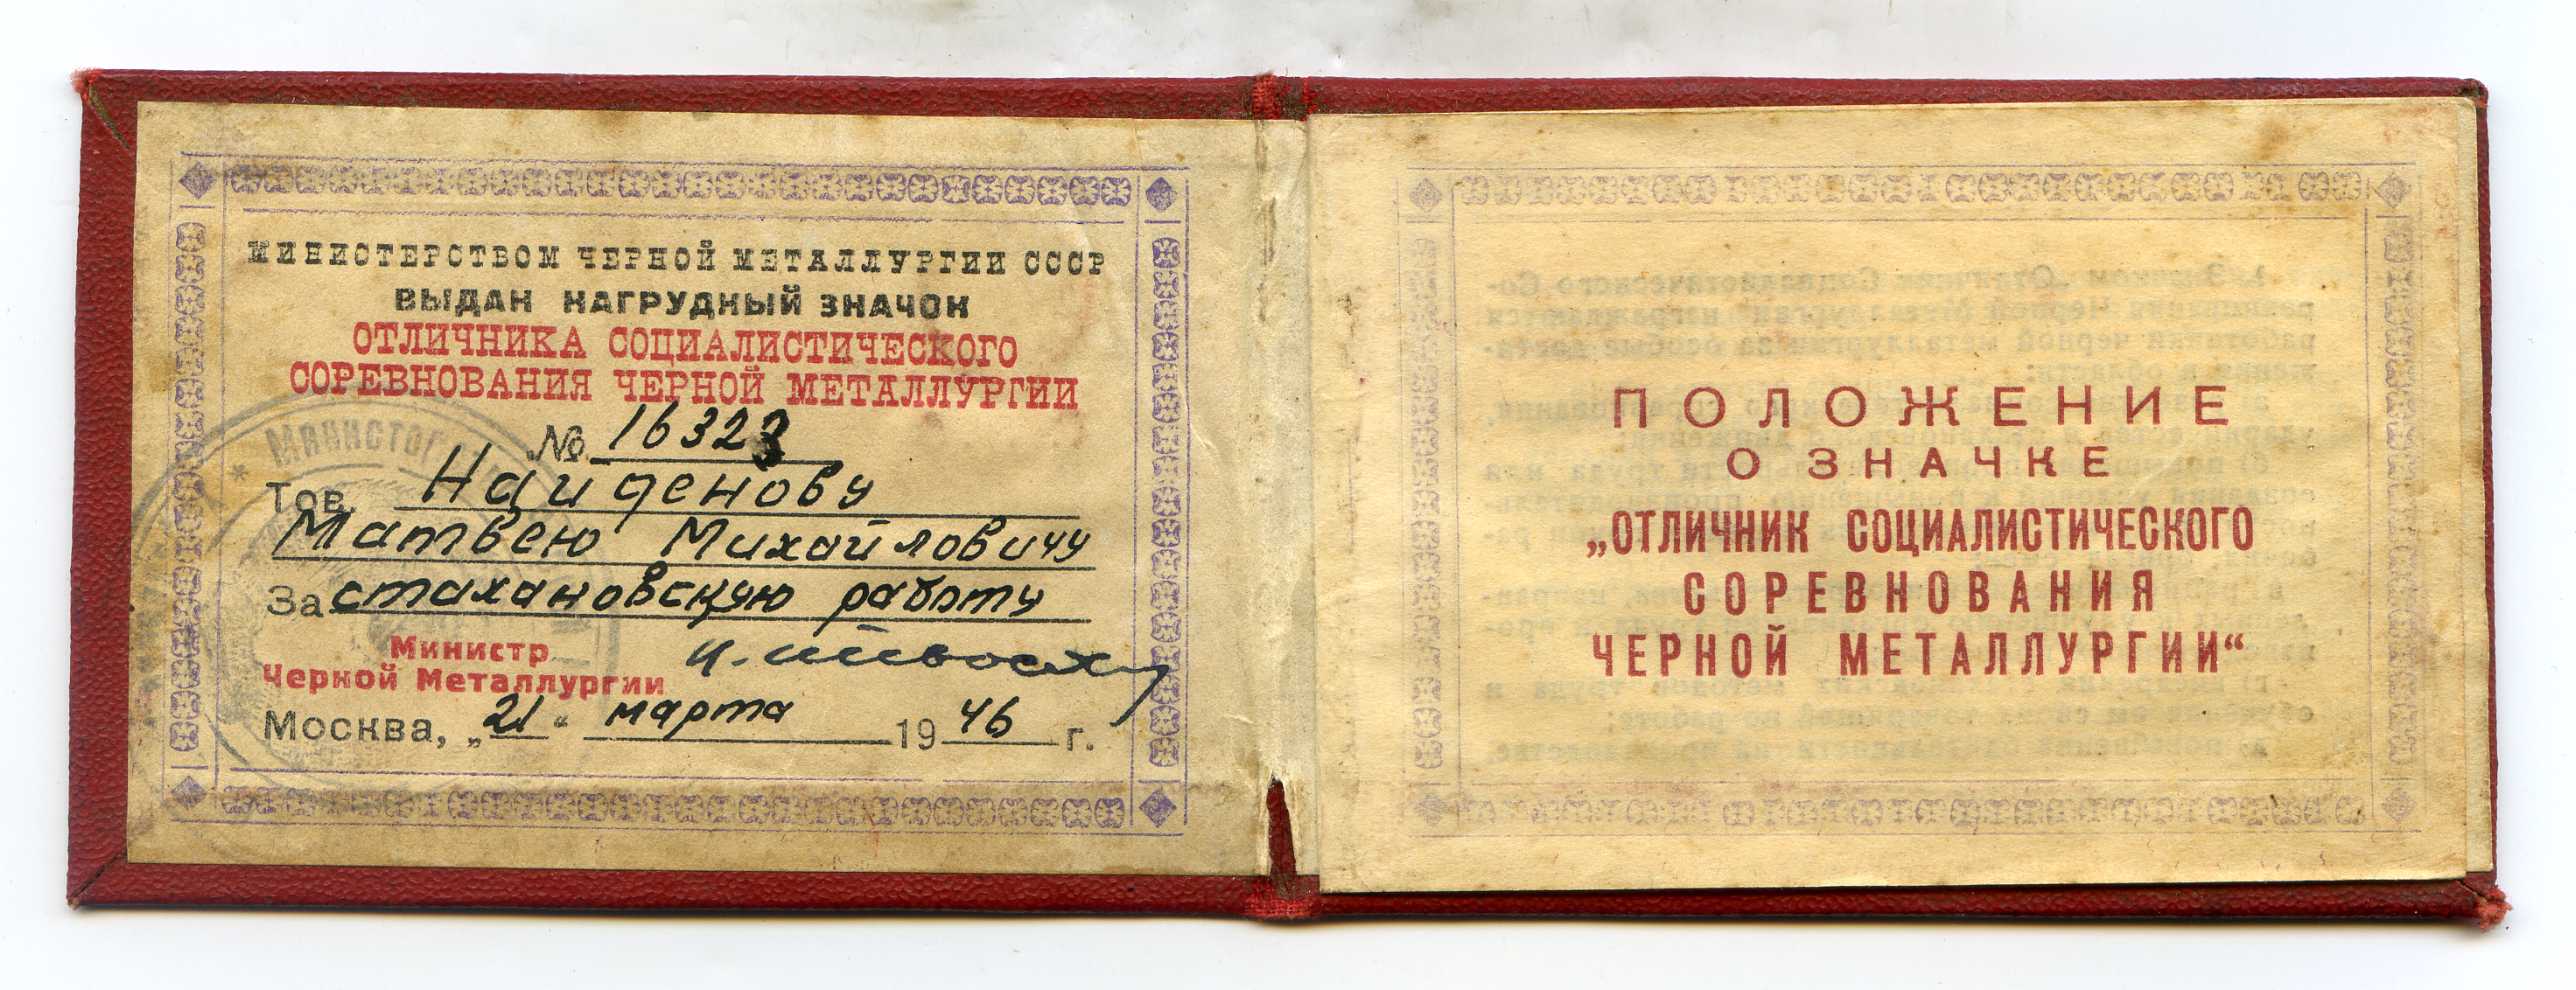 МИНИСТЕРСТВОМ ЧЕРНОЙ МЕТАЛЛУРГИИ СССР
ВЫДАН НАГРУДНЫЙ ЗНАЧОК
ОТЛИЧНИКА СОЦИАЛИСТИЧЕСКОГО
СОРЕВНОВАНИЯ ЧЕРНОЙ МЕТАЛЛУРГИИ
№ 16323
Тов. Найденову
Матвею Михайловичу
За стахановскую работу
Министр
Черной Металлургии
Москва, „21“ марта 1946 г.
ПОЛОЖЕНИЕ
О ЗНАЧКЕ
„ОТЛИЧНИК СОЦИАЛИСТИЧЕСКОГО
СОРЕВНОВАНИЯ
ЧЕРНОЙ МЕТАЛЛУРГИИ“